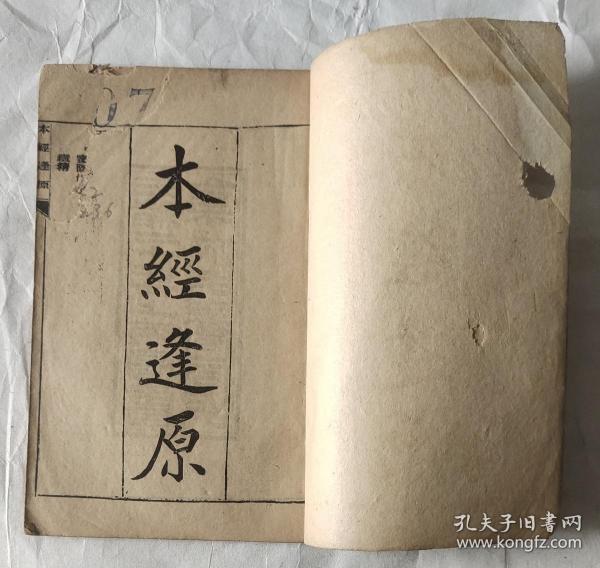 本經逢原
07
本經逢原
孔夫子旧书网
www.kongfz.com